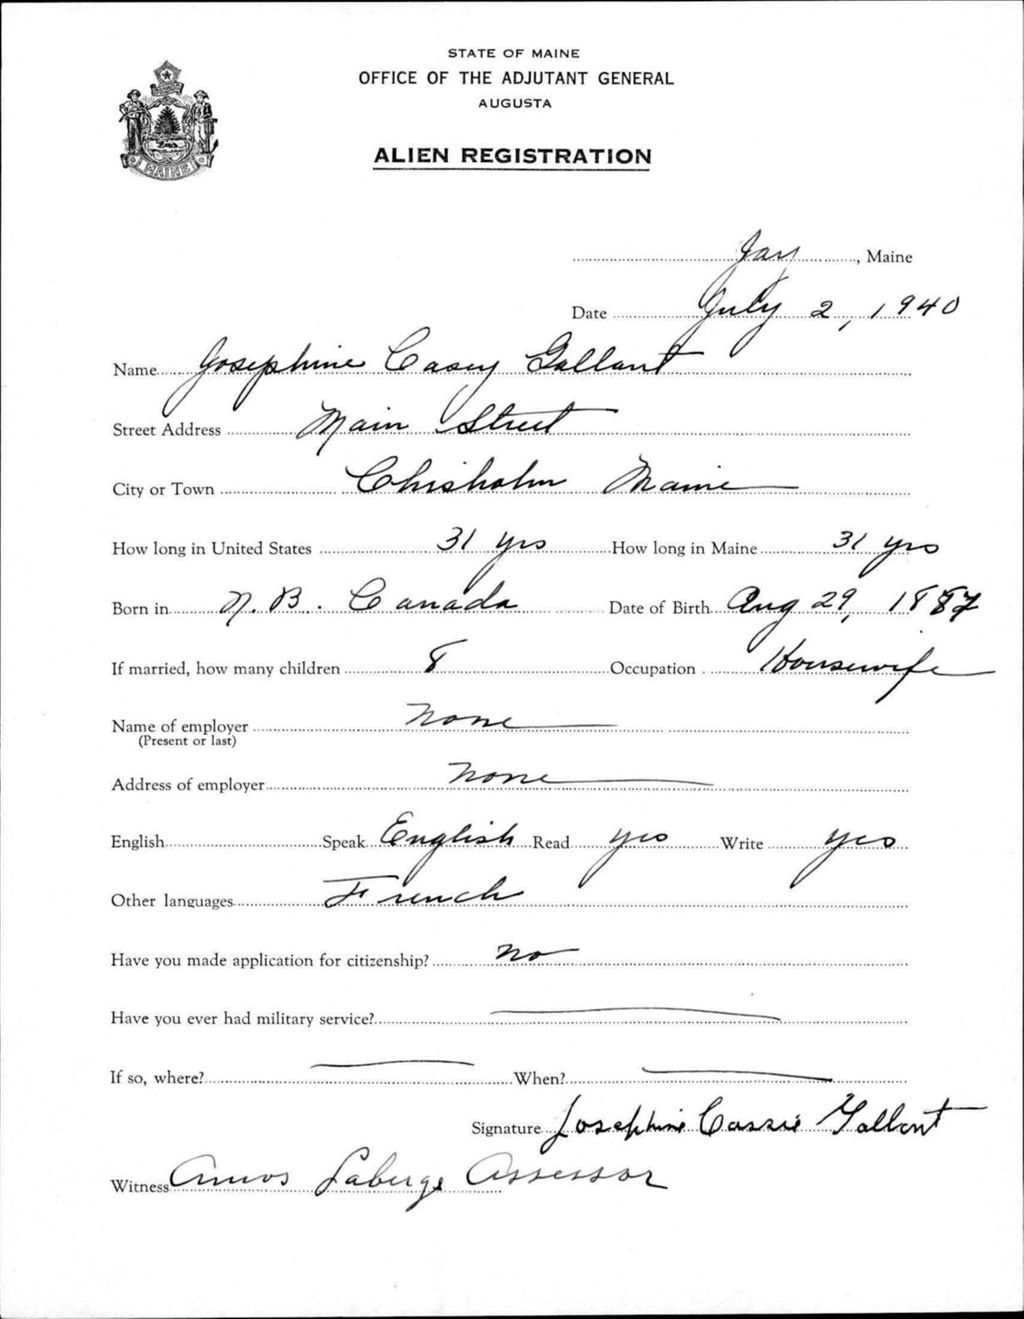 STATE OF MAINE
OFFICE OF THE ADJUTANT GENERAL
AUGUSTA
ALIEN REGISTRATION
MAINE
Jay, Maine
Date July 2, 1940
Name Josephine Casey Gallant
Street Address Main Street
City or Town Chisholm Maine
How long in United States 31 yrs How long in Maine 31 yrs
Born in N.B. Canada Date of Birth Aug 29, 1887
If married, how many children 8 Occupation Housewife
Name of employer none
(Present or last)
Address of employer none
English Speak English Read yes Write yes
Other languages French
Have you made application for citizenship? no
Have you ever had military service?
If so, where? When?
Signature Josephine Cassie Gallant
Witness Amos Laberge Assessor